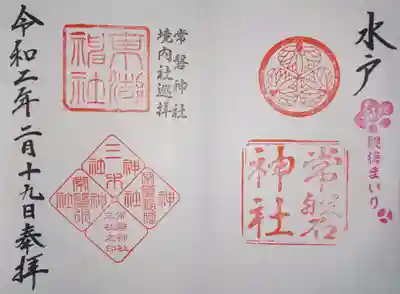 水戸
観梅まいり
常磐神社
常磐神社
境内社巡拝
東湖神社
三木神社
常磐稲荷神社
令和二年二月十九日奉拝